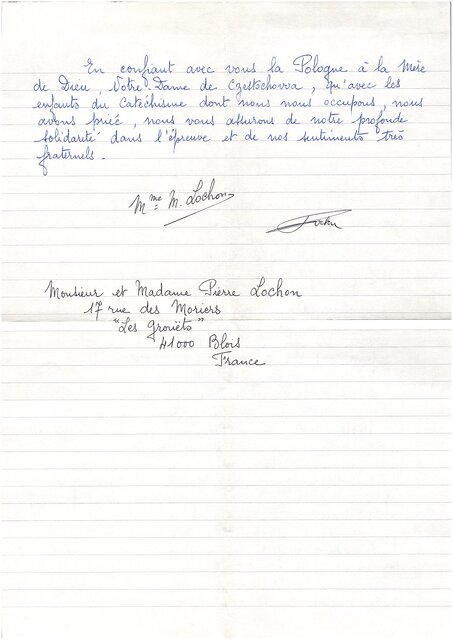 En confiant avec vous la Pologne à la Mère
de Dieu, Notre-Dame de Czestschovva, qu'avec les
enfants du Catéchisme dont nous nous occupons, nous
avons priée, nous vous assurons de notre profonde
solidarité dans l'épreuve et de nos sentiments très
fraternels.
Mme M. Lochon
Monsieur et Madame Pierre Lochon
17 rue des Moriers
"Les Grouëts"
41000 Blois
France